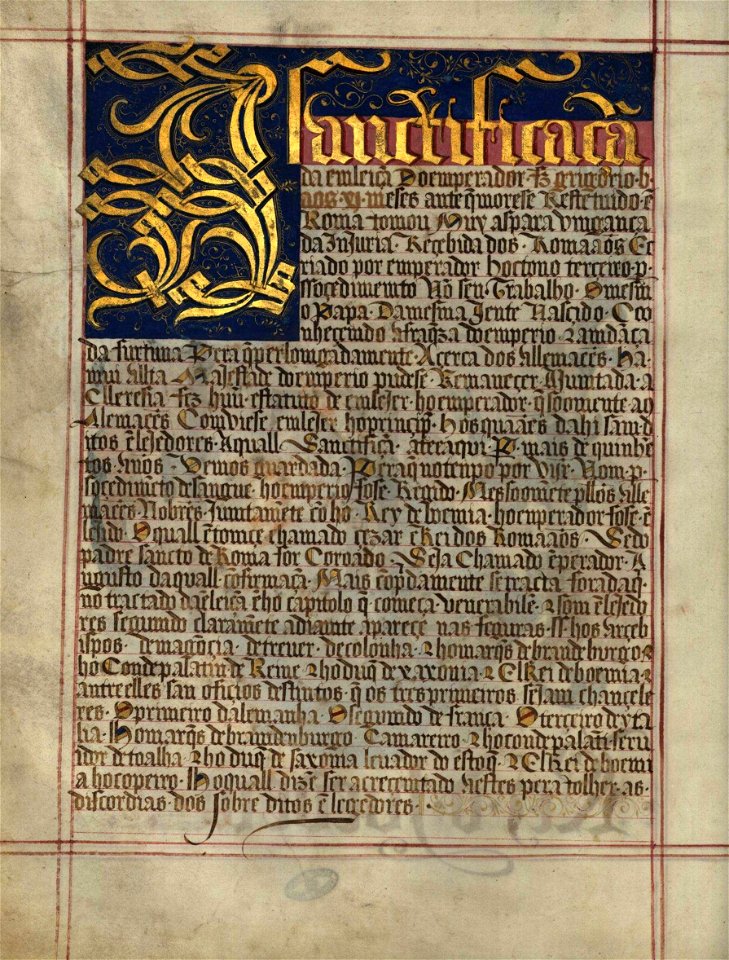 A sanctificaçã
da emleiçã do emperador · fz grigorio · b ·
aos · vi · meses ante q̃ morese Restetuido · ẽ
Roma tomou Muy aspara vingança
da Iniuria · Reçebida dos · Romaãos E c
riado por emperador hoctono terceiro · p ·
ssoçedimemto Nõ sem Trabalho · O mesm
o Papa · Da mesma Jente Nascido · Coo
nheçemdo a fraq̃za do emperio · ⁊ a mdãça
da furtuna Pera q̃ perlomgadamente · Açerca dos allemaẽs · ha ·
mui allta Magestade do emperio pudese · Remaneçer · Juntada · a
Cllereſia · fez huũ · estatuto de emlejer · ho emperador · q̃ soomente aos
Alemaẽs Comviese emlejer ho prinçip̃ · Hos quaães dahi sam di
tos ẽlejedores · a quall · Sanctifica · ate raqui · P · mais de quinhẽ
tos anos · Vemos guardada · Pera q̃ no tenpo por vijr · Nom · p ·
soçedimẽto de sangue · ho emperio fose · Regido · Mes soomẽte pllos alle
maẽs · Nobres · Juntamẽte cõ ho · Rey de boemia · ho emperador fose · ẽ
lejdo · O quall ẽtomçe chamado çezar e Rei dos Romaãos · Se do
padre sancto de Roma for Coroado · Seja Chamado ẽperador · A
ugusto da quall cõfirmaçã · Mais cop̃damente se tracta fora daq̃ ·
no tractado da ẽleiçã ẽ ho capitolo q̃ começa venerabilẽ · ⁊ som ẽlejedo
res segundo claramẽte adiante apareçe nas feguras · ss · hos arçeb
ispos · de magõcia · de treuer · de colonha · ⁊ ho marq̃s de brandeburgo ⁊
ho Conde palatin de Reine · ⁊ ho duq̃ de xaxonia · ⁊ El Rei de boemia · ⁊
antre elles san ofiçios destintos · q̃ os tres primeiros sejam chançele
res · O primeiro d alemanha · O segundo de frança · O terceiro de yta
lia · Ho marq̃s · de brandenburgo · Camareiro · ⁊ ho conde palati · serui
idor de toalha · ⁊ ho duq̃ de saxonia leuador do estoq̃ · ⁊ El Rei de boemi
a ho copeiro · Ho quall dizẽ ser acreçentado a estes pera tolher · as ·
discordias · dos sobre ditos ẽ legedores ·